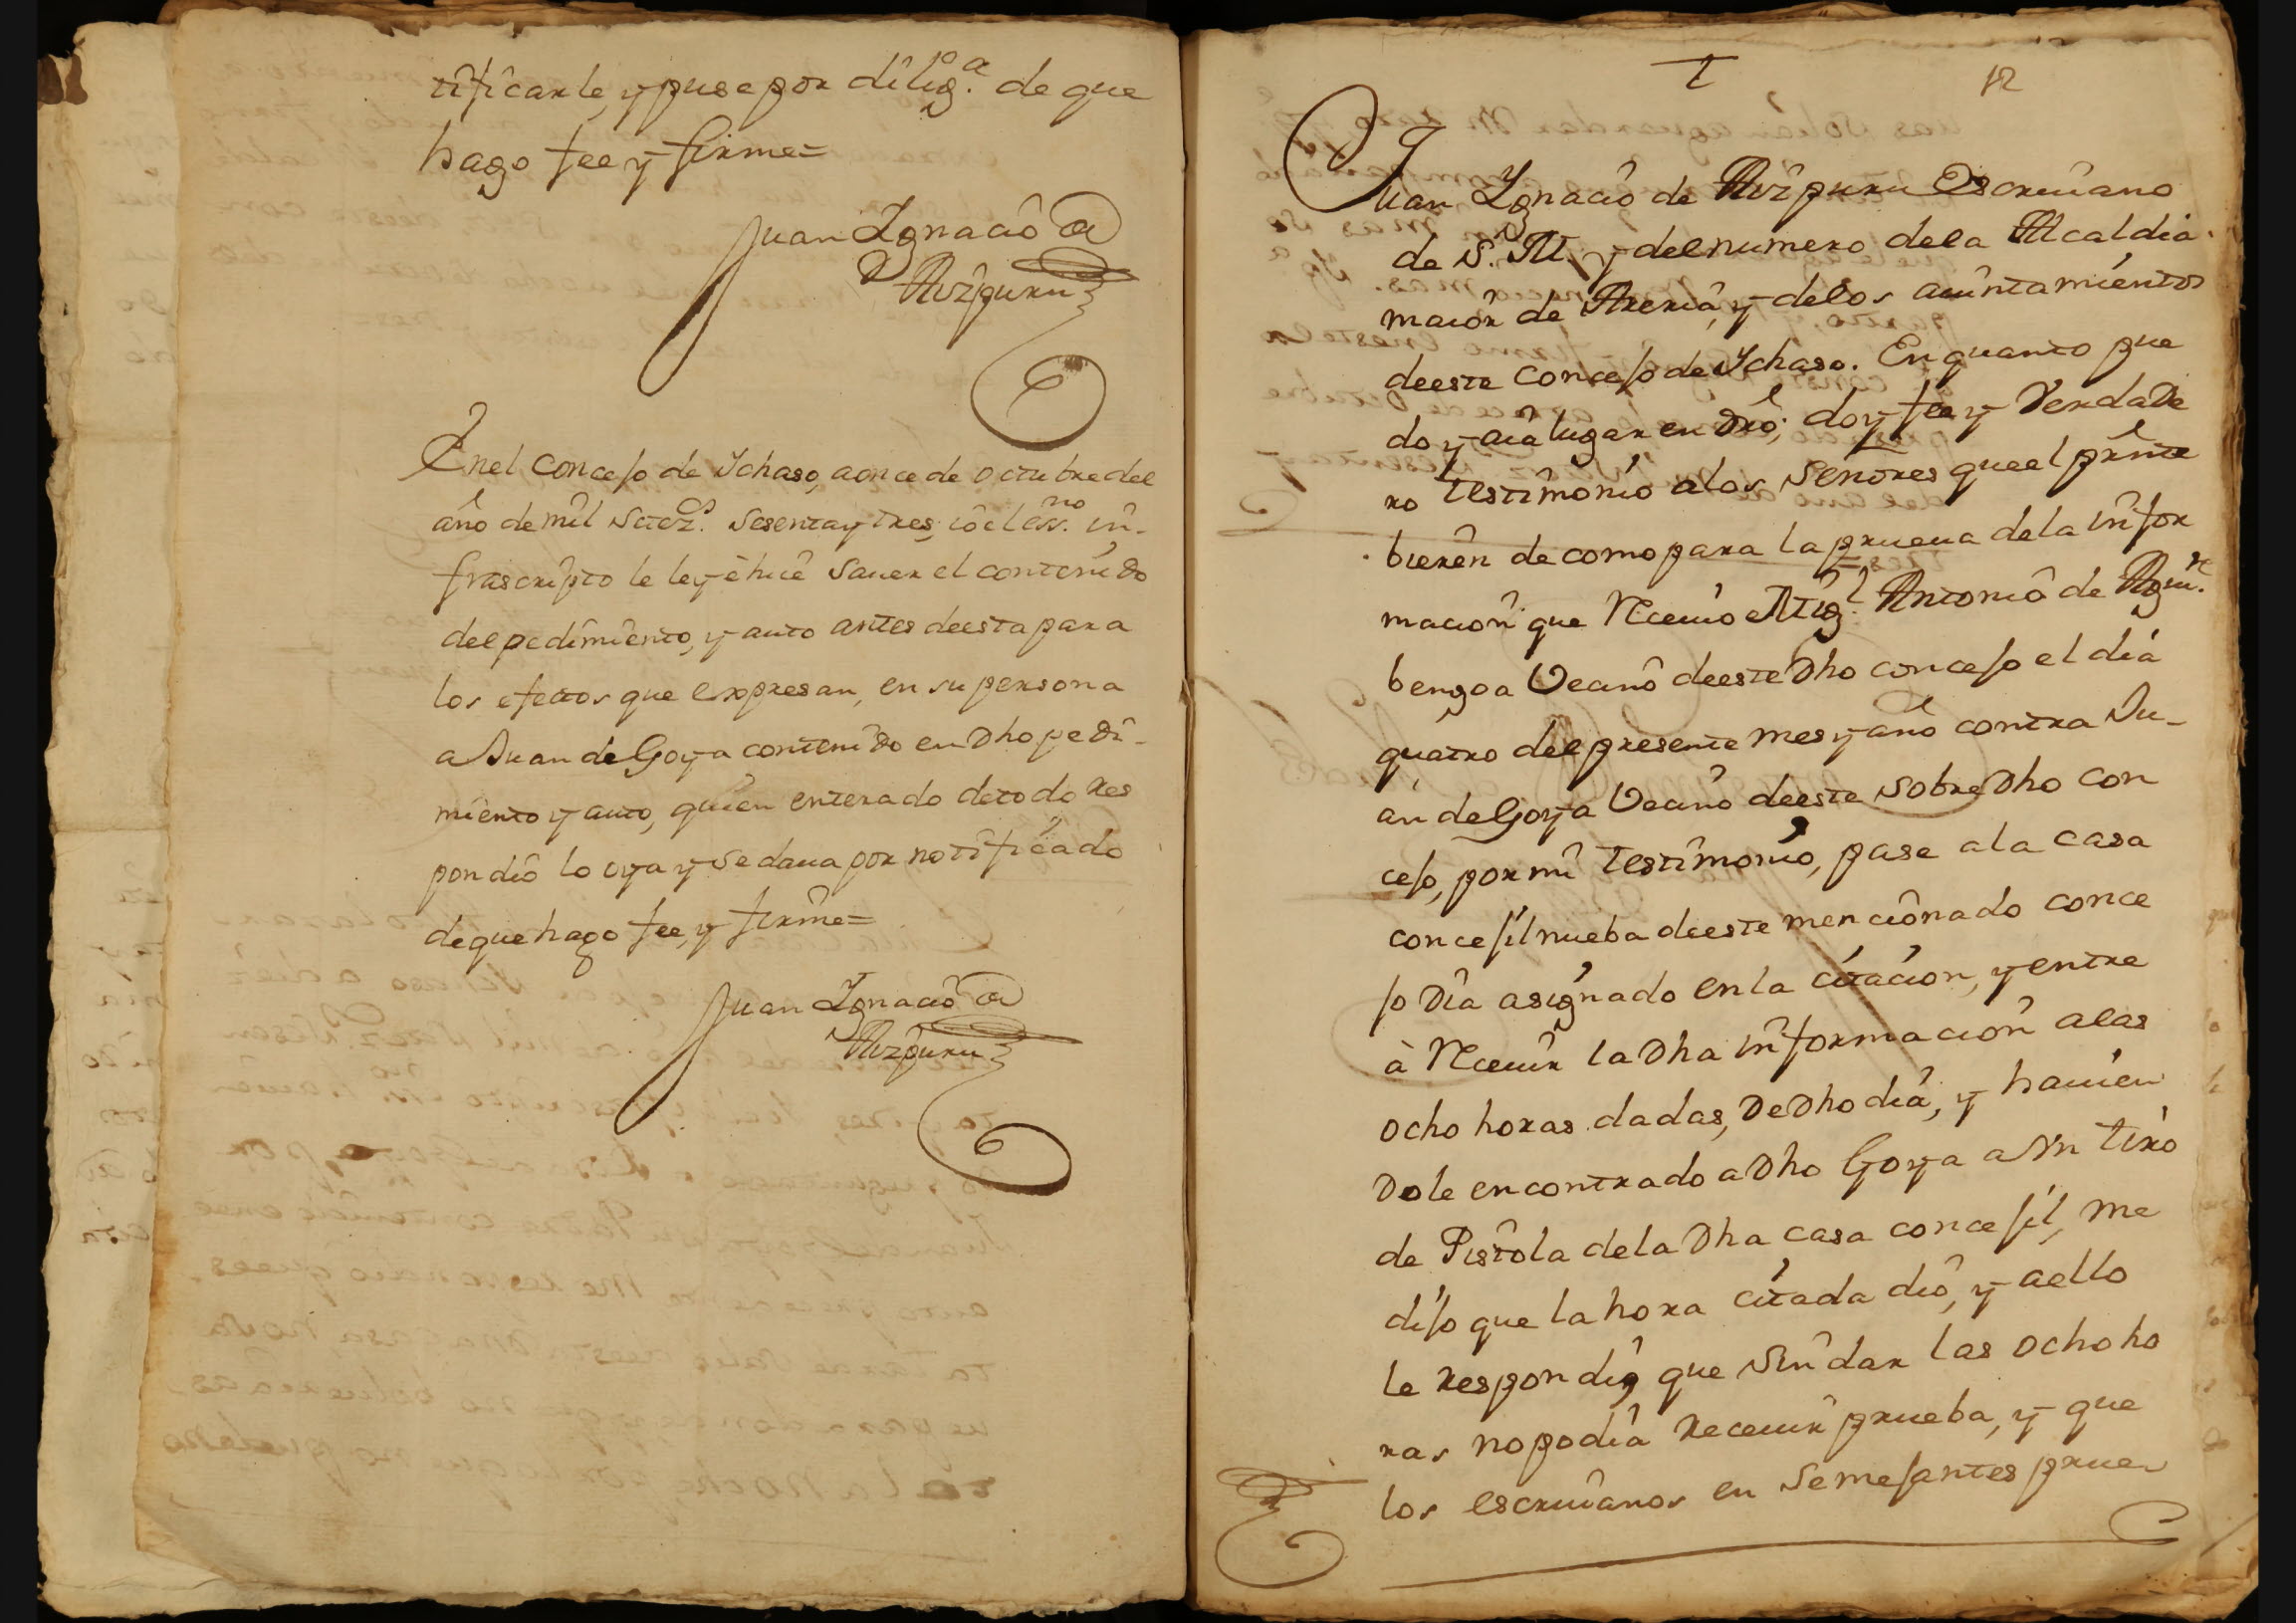 tificarle, y puse por dilig.ª de que
hago fee y firme=
Juan Ignacio de
Aizpuru
En el Concejo de Ychaso, a once de octubre del
año de mil Setez.s Sesenta y tres, io el ess.no in-
frascripto le ley è hice Saver el contenido
del pedimiento, y auto antes de esta para
los efectos que expresan, en su persona
a Juan de Goya contenido en Dho pedi-
miento y auto, quien enterado de todo Res
pondiò lo oya y se daua por notificado
de que hago fee, y firme=
Juan Ignacio de
Aizpuru
12
Juan Ignacio de Aizpuru Escriuano
de S. M. y del numero de la Alcaldia
maior de Areria, y de los aiuntamientos
de este concejo de Ychaso. En quanto pue
do y aia lugar en Dro, doy fee y Verdade
ro testimonio a los Señores que el prnte
bieren de como para la prueua de la infor
macion que Receuio Mig.l Antonio de Agui.re
bengoa Vecino de este Dho concejo el dia
quatro del presente mes y año contra Ju-
an de Goya Vecino de este sobre Dho Con
cejo, por mi testimonio, pase a la casa
concejil nueba de este mencionado conce
jo Dia asignado en la citacion, y entre
à Receuir la Dha informacion a las
ocho horas dadas, De Dho dia, y hauien
Dole encontrado a Dho Goya a Vn tiro
de Pistola de la Dha casa concejil, me
dijo que la hora citada dio, y a ello
le respondi, que Sin dar las ocho ho
ras no podia receuir prueba, y que
los escriuanos en Semejantes prue